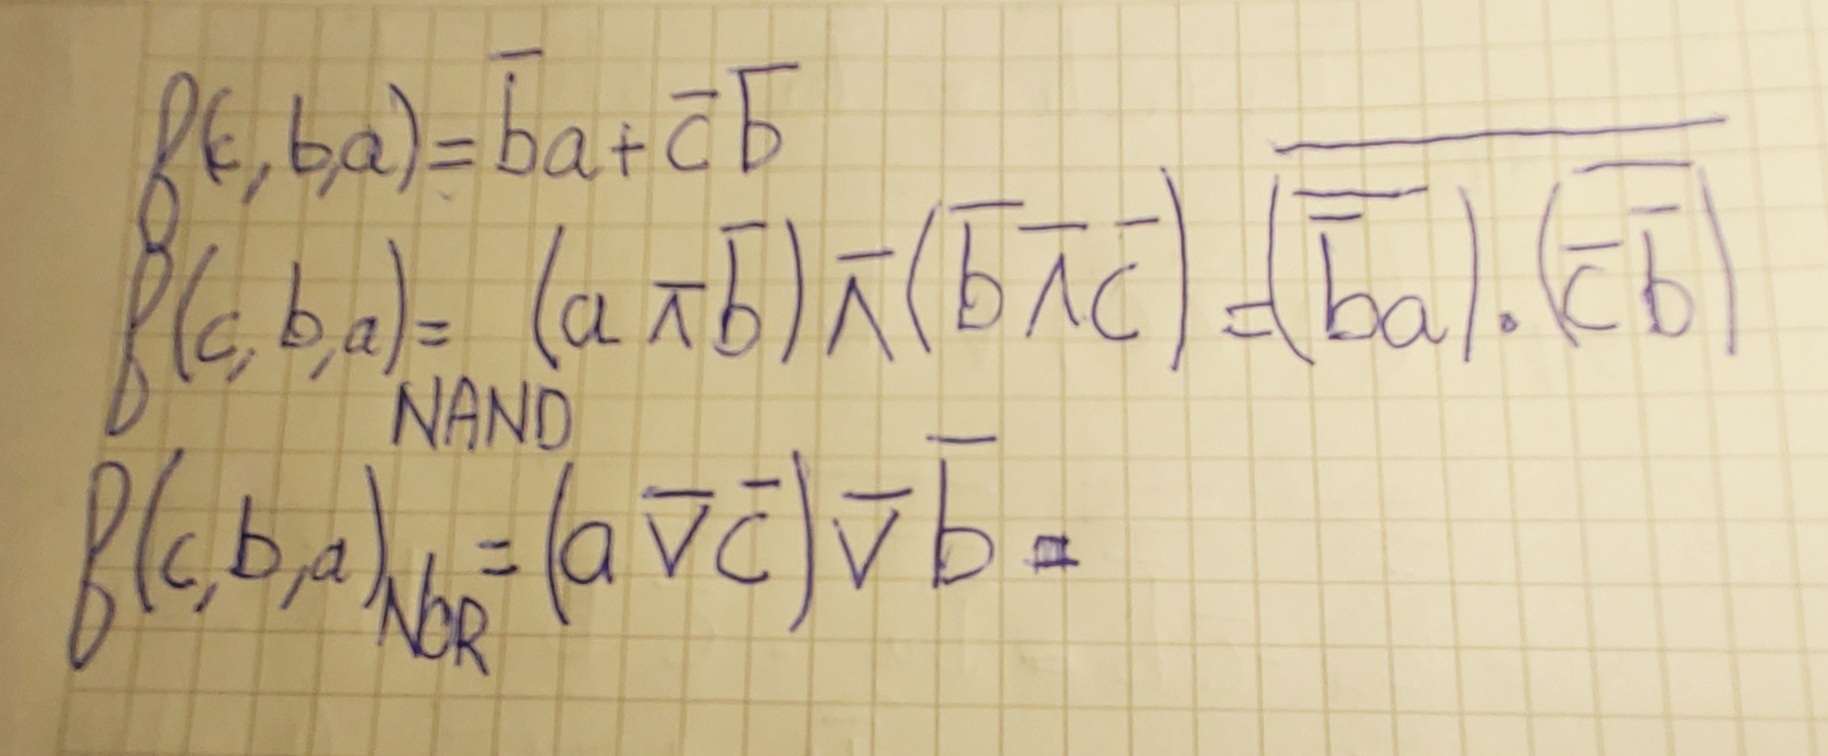 f(c,b,a)=b̅a+c̅b̅
f(c,b,a)NAND = (a ⊼ b̅) ⊼ (b̅ ⊼ c̅) = \overline{(\overline{b̅a}) · (\overline{c̅b̅})}
f(c,b,a)NOR = (a ⊽ c̅) ⊽ b̅ =